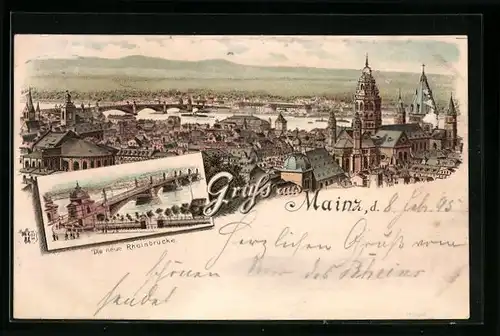 Gruss aus
Mainz, d. 8 Feb. 95
Die neue Rheinbrücke.
Herzlichen Gruß vom
schönen des Rheins
sendet